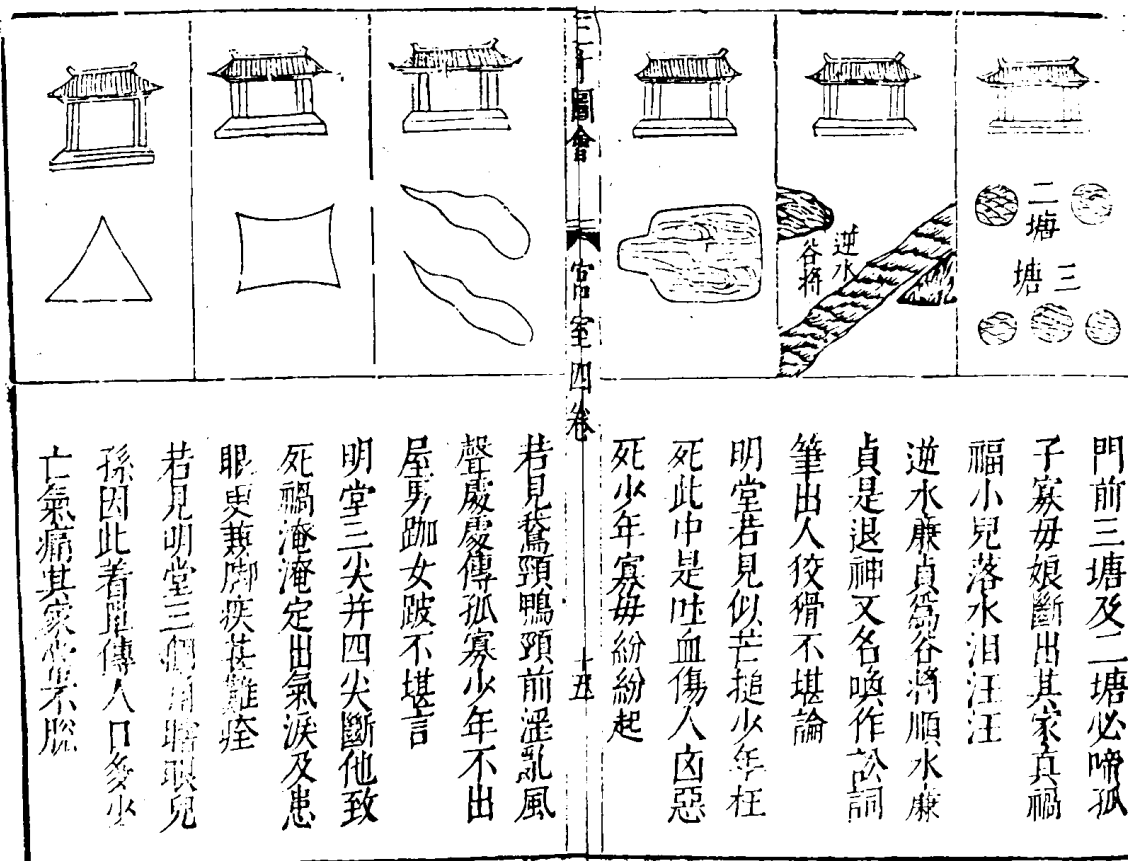 二塘
三塘
逆水
谷將
門前三塘及二塘必啼孤
子寡母娘斷出其家真禍
福小兒落水泪汪汪
逆水廉貞爲谷將順水廉
貞是退神又名喚作訟詞
筆出人狡猾不堪論
明堂若見似芒搥少年枉
死此中是吐血傷人凶惡
死少年寡母紛紛起
三才圖會
宮室四卷
十五
若見鵞頸鴨頸前淫亂風
聲處處傳孤寡少年不出
屋男跏女跛不堪言
明堂三尖并四尖斷他致
死禍淹淹定出氣淚及患
眼更兼脚疾甚難痊
若見明堂三個角瞎眼兒
孫因此着 傳人口多少
亡氣痛其家 不脫